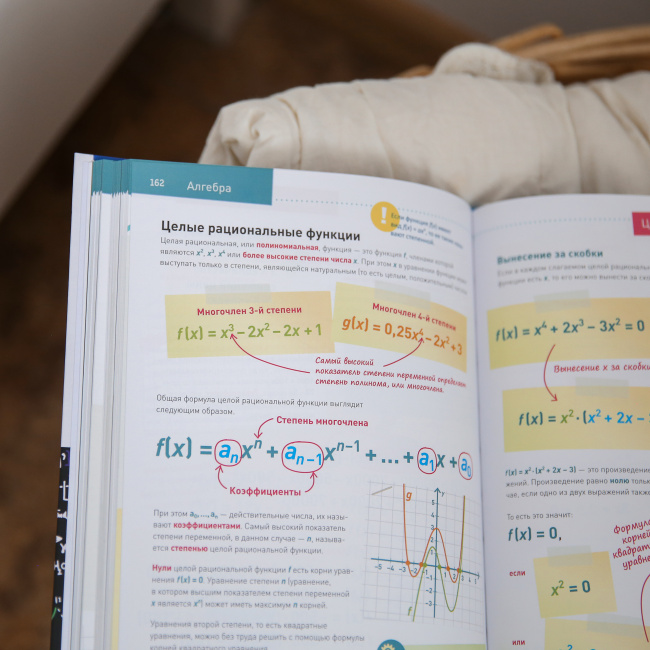 162 Алгебра
Целые рациональные функции
Целая рациональная, или полиномиальная, функция — это функция f, членами которой
являются x², x³, x⁴ или более высокие степени числа x. При этом x в уравнении функции может
выступать только в степени, являющейся натуральным (то есть целым, положительным)
!
Если функция f(x) имеет
вид f(x) = axⁿ, то ее также
вают степенной.
Многочлен 3-й степени
f(x) = x³ – 2x² – 2x + 1
Многочлен 4-й степени
g(x) = 0,25x⁴ – 2x² + 3
Самый высокий
показатель степени переменной определяет
степень полинома, или многочлена.
Общая формула целой рациональной функции выглядит
следующим образом.
Степень многочлена
f(x) = aₙxⁿ + aₙ₋₁xⁿ⁻¹ + ... + a₁x + a₀
Коэффициенты
При этом a₀, ..., aₙ — действительные числа, их назы-
вают коэффициентами. Самый высокий показатель
степени переменной, в данном случае — n, называ-
ется степенью целой рациональной функции.
Нули целой рациональной функции f есть корни урав-
нения f(x) = 0. Уравнение степени n (уравнение,
в котором высшим показателем степени переменной
x является xⁿ) может иметь максимум n корней.
Уравнения второй степени, то есть квадратные
уравнения, можно без труда решить с помощью формулы
корней квадратного уравнения
g
f
y
x
5
4
3
2
1
–5 –4 –3 –2 –1
1 2 3 4
–1
–2
–3
Ц
Вынесение за скобки
Если в каждом слагаемом целой рациональной
функции есть x, то его можно вынести за
f(x) = x⁴ + 2x³ – 3x² = 0
Вынесение x за скобки
f(x) = x² · (x² + 2x –
f(x) = x² · (x² + 2x – 3) — это произведение
жений. Произведение равно нолю только
чае, если одно из двух выражений также
То есть это значит:
f(x) = 0,
Формула
корней
квадратного
уравнения
если
x² = 0
или